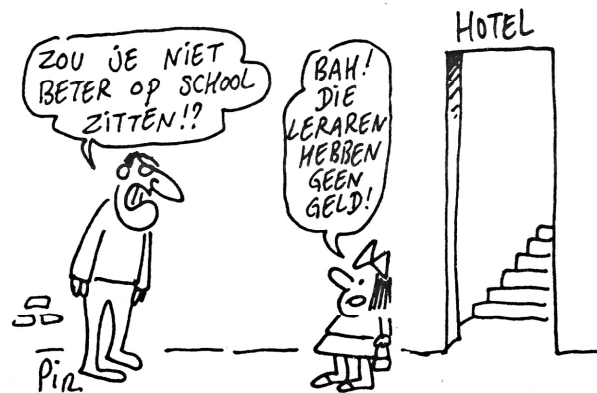 ZOU JE NIET
BETER OP SCHOOL
ZITTEN!?
BAH!
DIE
LERAREN
HEBBEN
GEEN
GELD!
HOTEL
Pir.